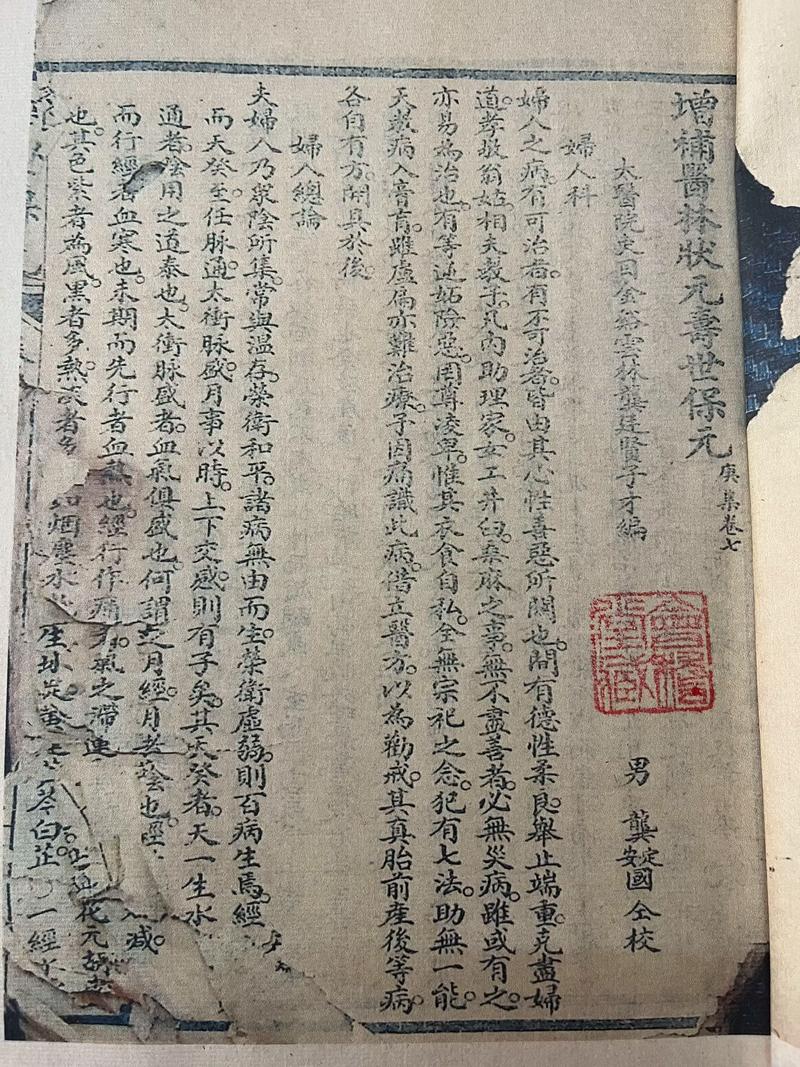 增補醫林狀元壽世保元 庚集卷七
太醫院吏目金谿雲林龔廷賢子才編
男 龔 安定國 仝校
婦人科
婦人之病。有可治者。有不可治者。皆由其心性善惡所關也。間有德性柔良。舉止端重。克盡婦
道。孝敬翁姑。相夫教子。凡內助理家。女工井臼。桑麻之事。無不盡善者。必無災病。雖或有之。
亦易為治也。有等逆妬險惡。罔尊凌卑。惟其衣食自私。全無宗祀之念。犯有七法。助無一能。
天報病入膏肓。雖盧扁亦難治療。予因痛識此病。借立醫方。以為勸戒。其真胎前產後等病。
各自有方。開具於後。
婦人總論
夫婦人乃眾陰所集。常與溫存。榮衛和平。諸病無由而生。榮衛虛弱。則百病生焉。經
而天癸至。任脉通。太衝脉盛。月事以時。上下交感。則有子矣。其天癸者。天一生水
通者。陰用之道泰也。太衝脉盛者。血氣俱盛也。何謂之月經。月者陰也。經
而行經者血寒也。未期而先行者血熱也。經行作痛者。氣之滯 減。
也。其色紫者為風。黑者多熱。淡者多 花元胡
如烟塵水 生地 黄 芩白芷。 一經